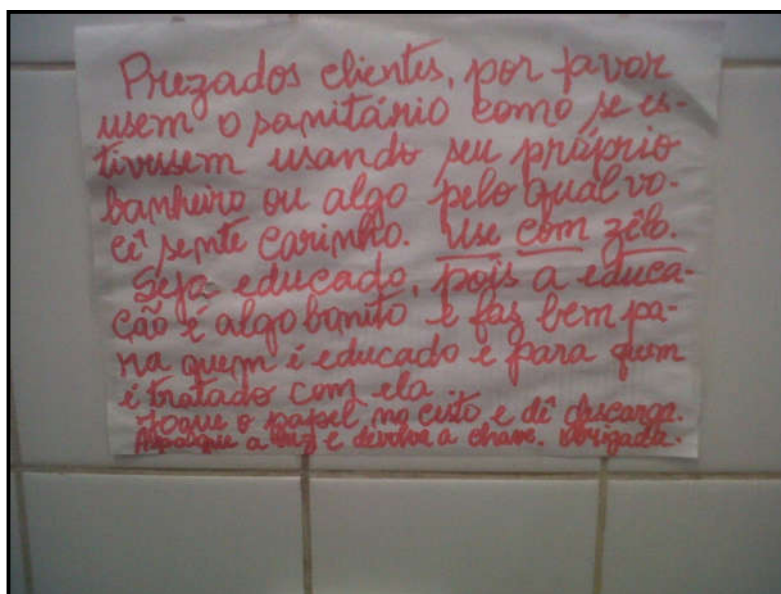 Prezados clientes, por favor
usem o sanitário como se es-
tivessem usando seu próprio
banheiro ou algo pelo qual vo-
cê sente carinho. Use com zêlo.
Seja educado, pois a educa-
ção é algo bonito e faz bem pa-
ra quem é educado e para quem
é tratado com ela.
Jogue o papel no cesto e dê descarga.
Apague a luz e devolva a chave. Obrigada.